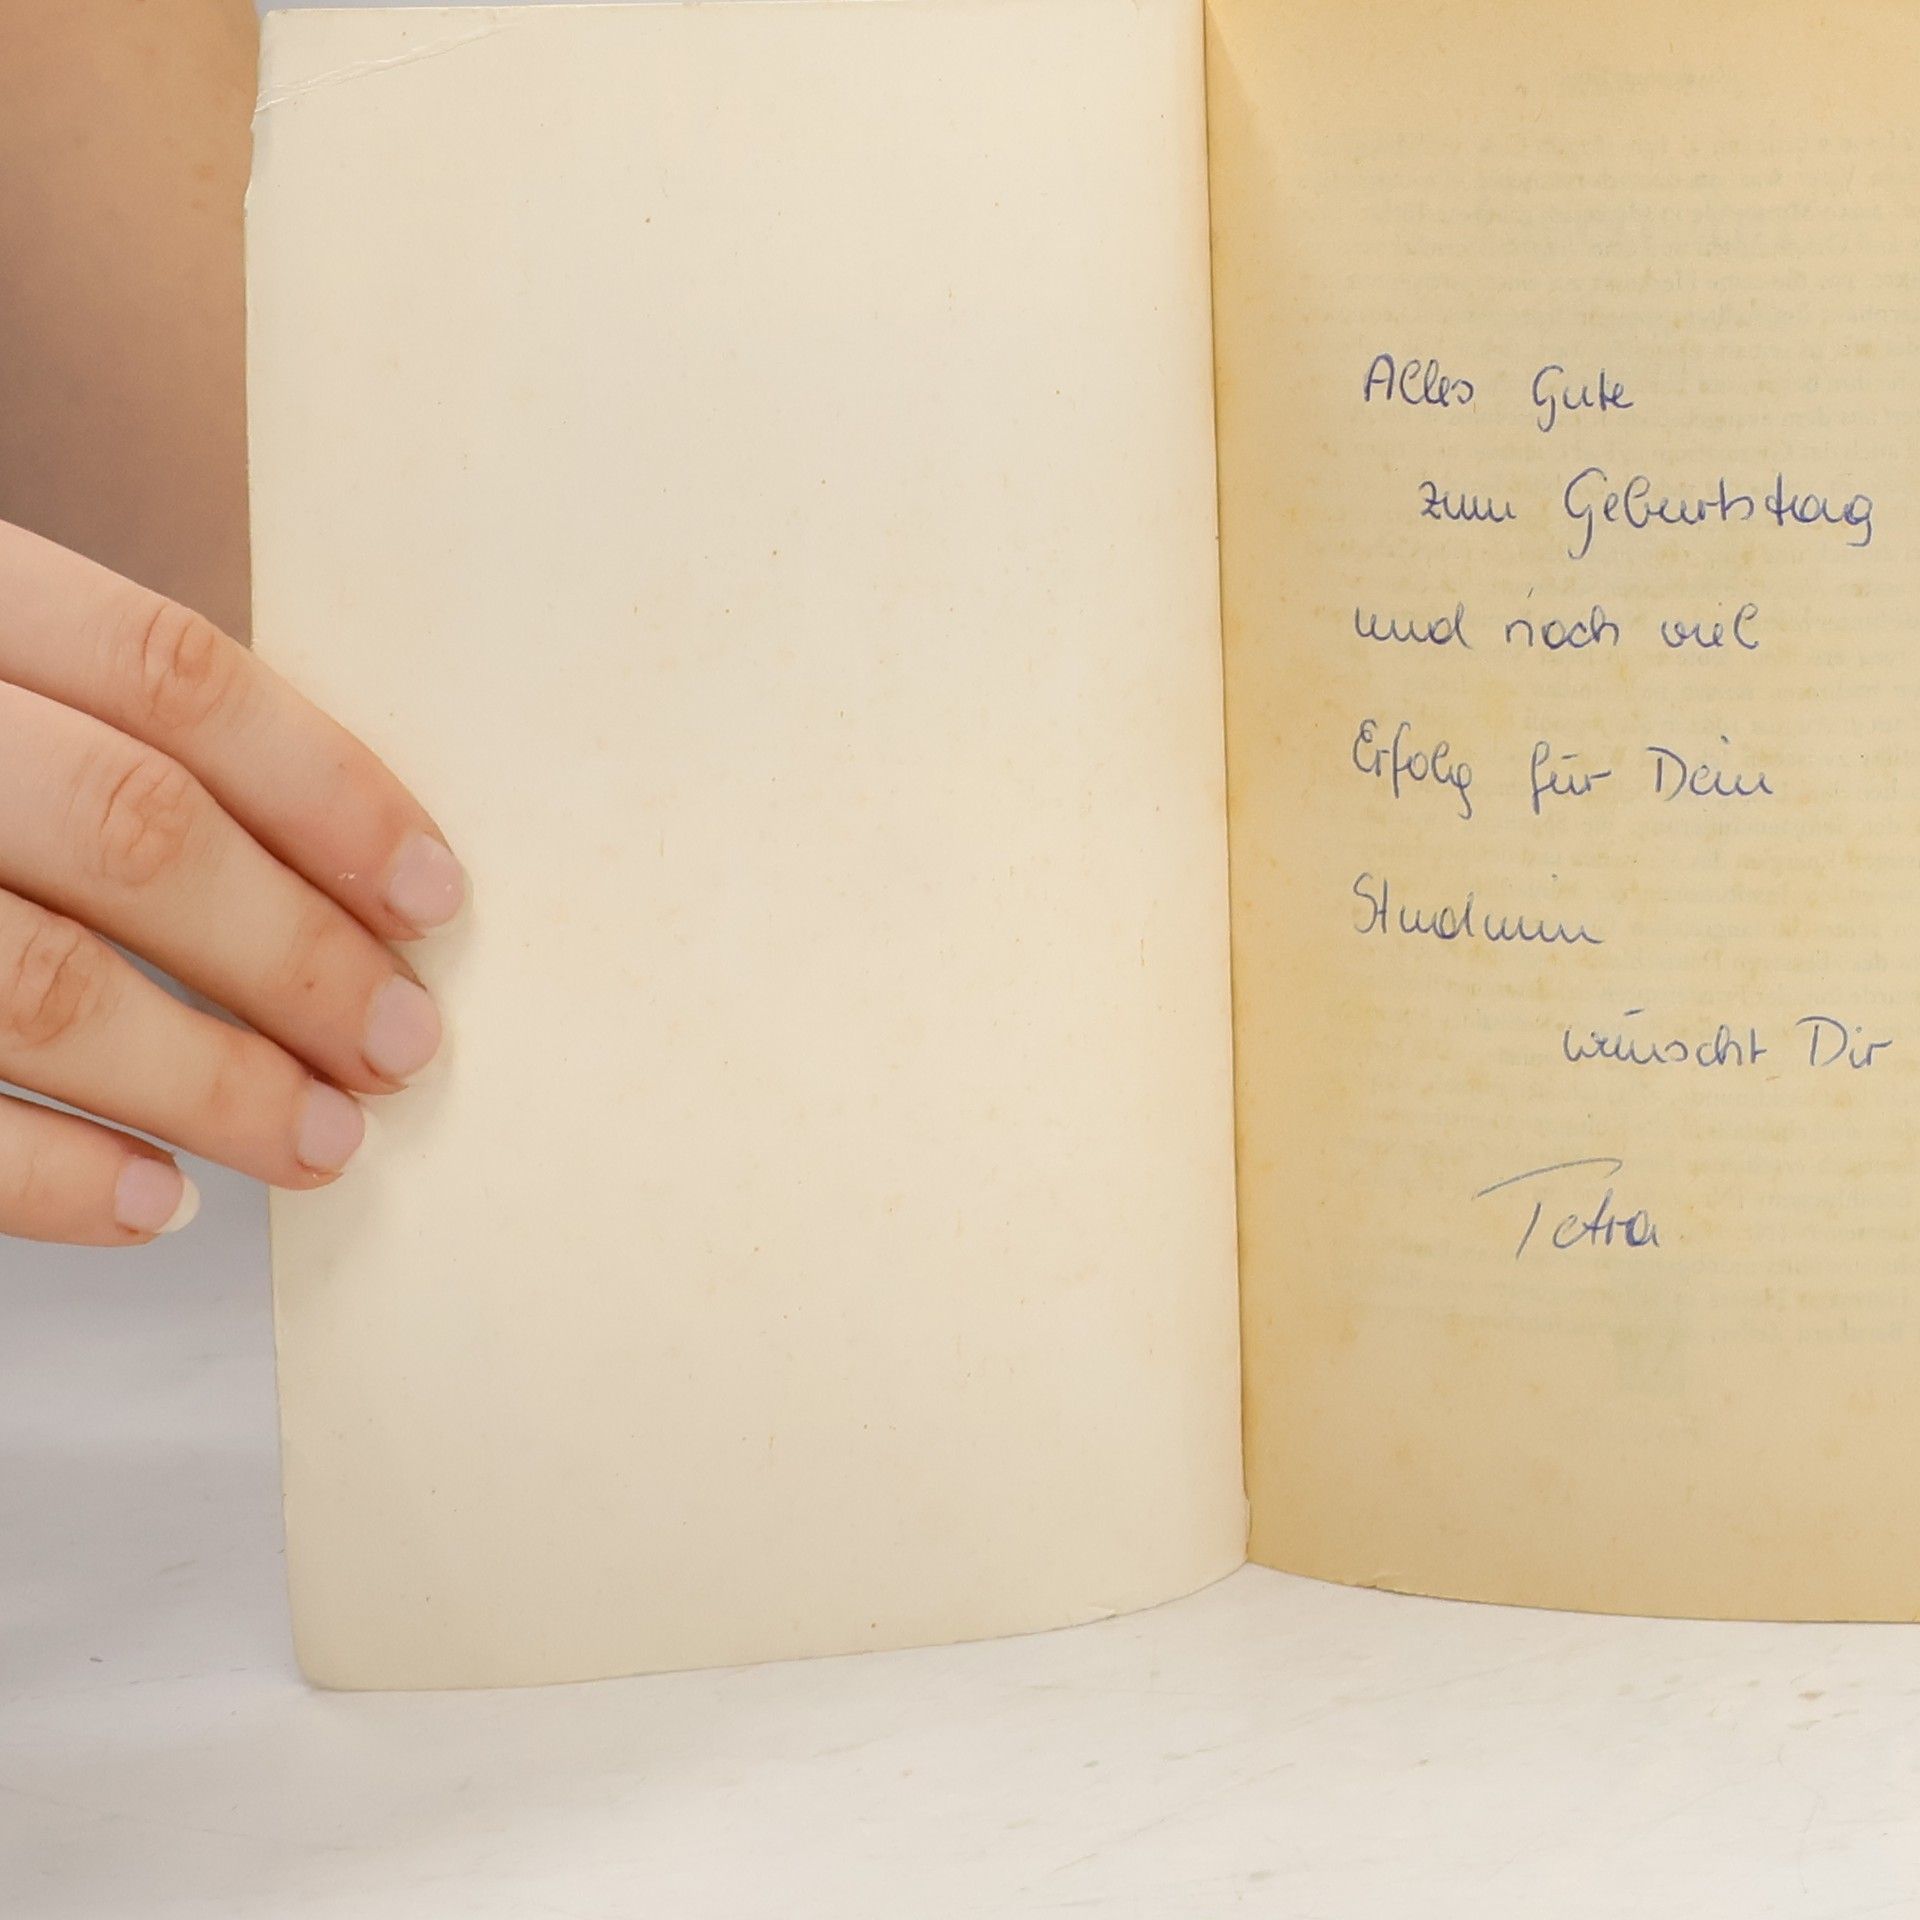 Alles Gute
zum Geburtstag
und noch viel
Erfolg für Dein
Studium
wünscht Dir
Petra